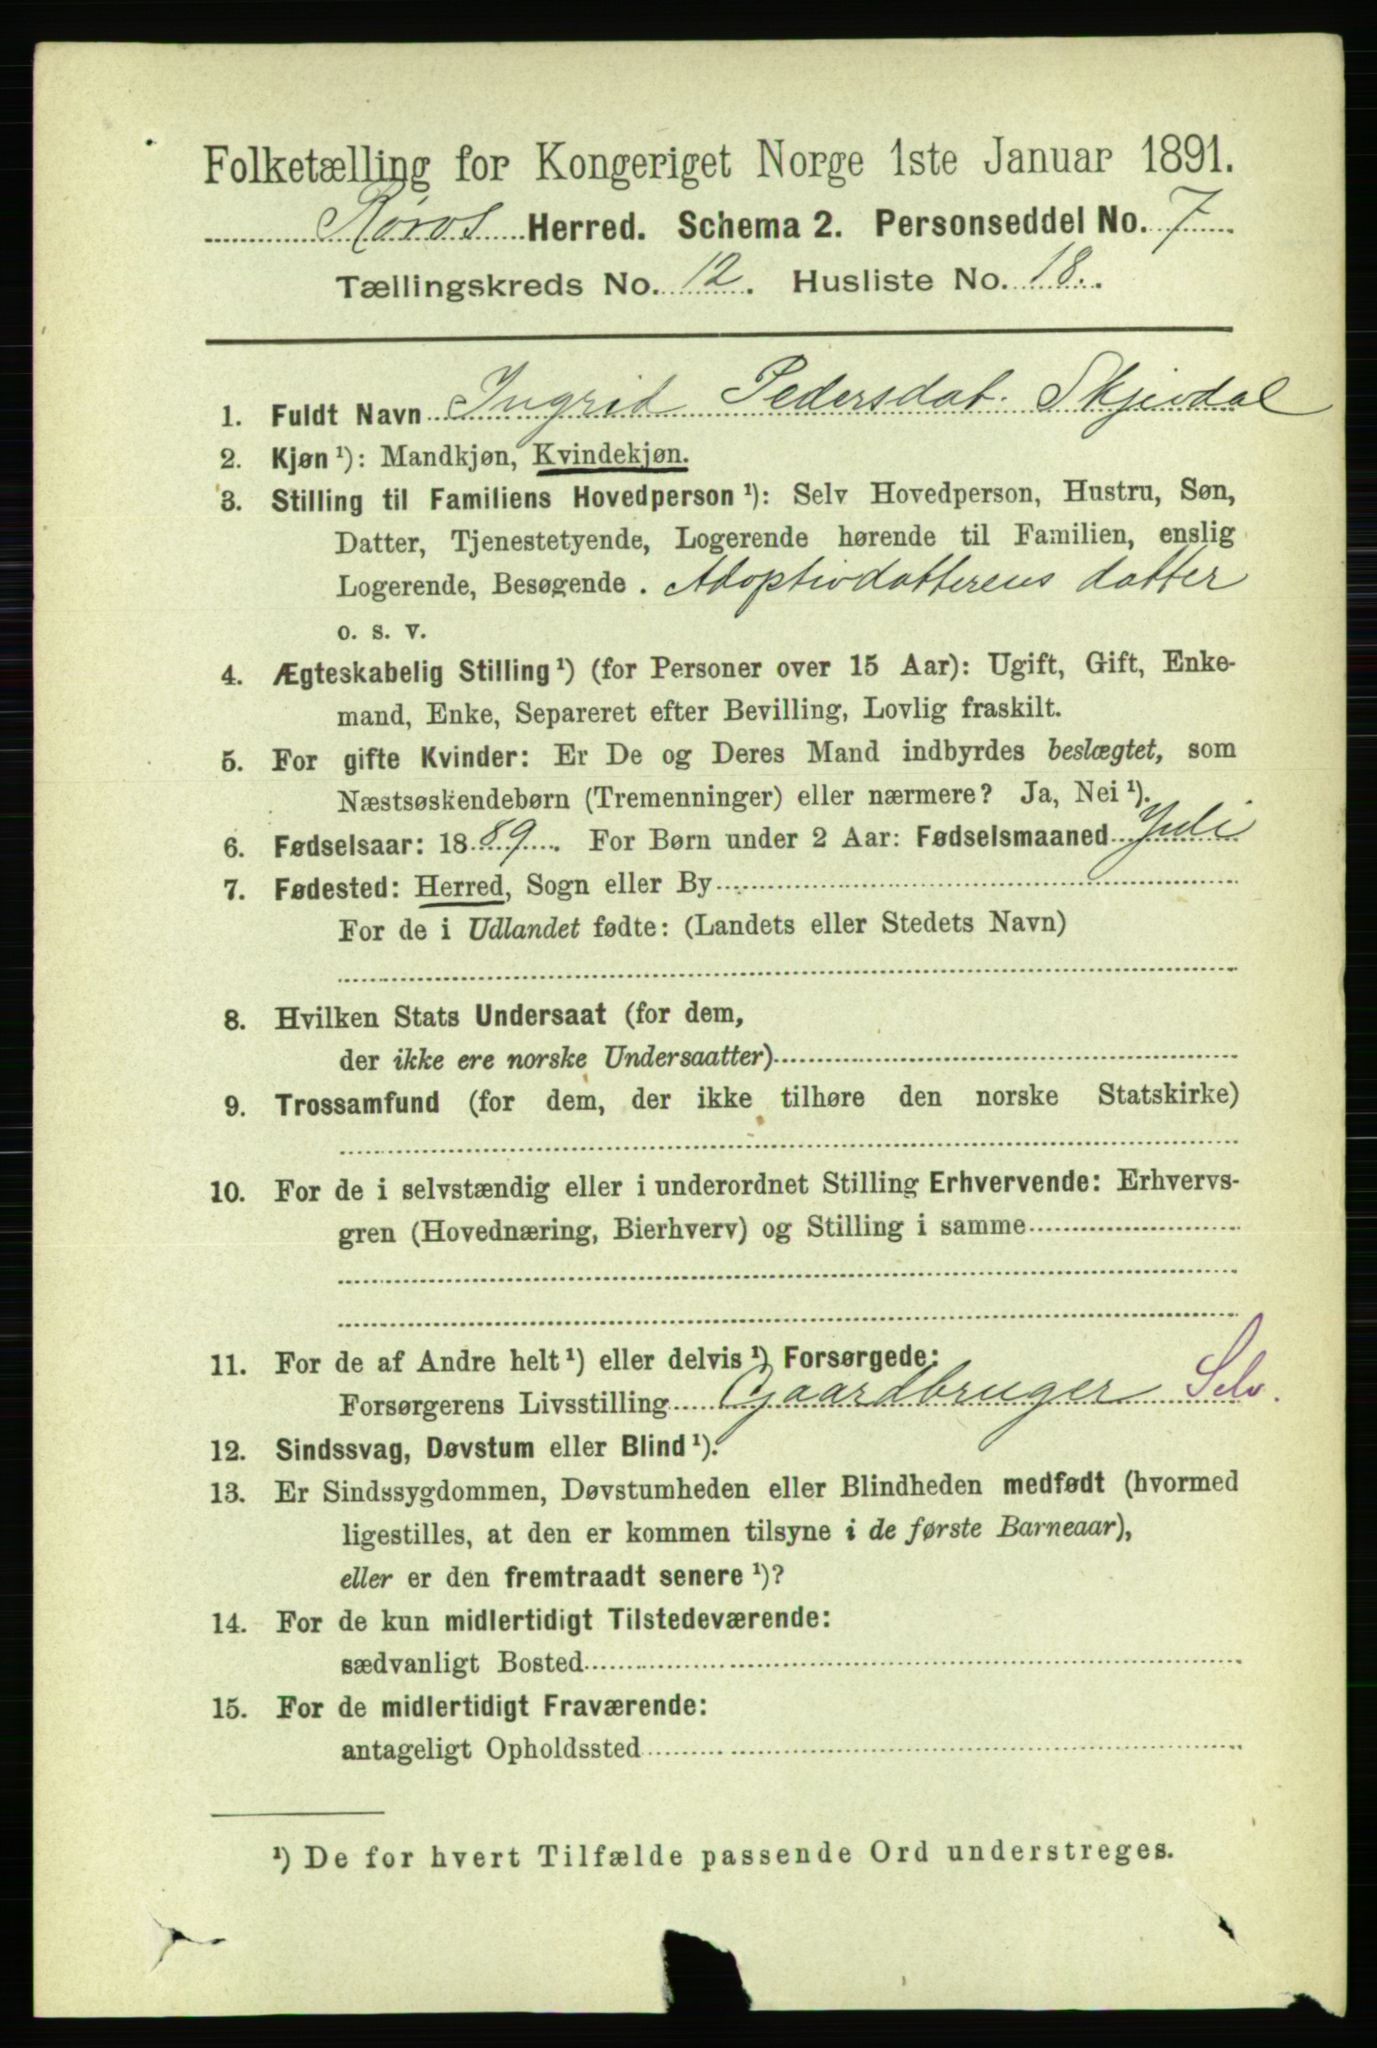 Folketælling for Kongeriget Norge 1ste Januar 1891.
Røros Herred. Schema 2. Personseddel No. 7
Tællingskreds No. 12. Husliste No. 18.
1. Fuldt Navn Ingrid Pedersdat. Skjevdal
2. Kjøn ¹): Mandkjøn, Kvindekjøn.
3. Stilling til Familiens Hovedperson ¹): Selv Hovedperson, Hustru, Søn,
Datter, Tjenestetyende, Logerende hørende til Familien, enslig
Logerende, Besøgende . Adoptivdatterens datter
o. s. v.
4. Ægteskabelig Stilling ¹) (for Personer over 15 Aar): Ugift, Gift, Enke-
mand, Enke, Separeret efter Bevilling, Lovlig fraskilt.
5. For gifte Kvinder: Er De og Deres Mand indbyrdes beslægtet, som
Næstsøskendebørn (Tremenninger) eller nærmere? Ja, Nei ¹).
6. Fødselsaar: 1889. For Børn under 2 Aar: Fødselsmaaned Juli
7. Fødested: Herred, Sogn eller By
For de i Udlandet fødte: (Landets eller Stedets Navn)
8. Hvilken Stats Undersaat (for dem,
der ikke ere norske Undersaatter)
9. Trossamfund (for dem, der ikke tilhøre den norske Statskirke)
10. For de i selvstændig eller i underordnet Stilling Erhvervende: Erhvervs-
gren (Hovednæring, Bierhverv) og Stilling i samme
11. For de af Andre helt ¹) eller delvis ¹) Forsørgede:
Forsørgerens Livsstilling Gaardbruger Selv.
12. Sindssvag, Døvstum eller Blind ¹).
13. Er Sindssygdommen, Døvstumheden eller Blindheden medfødt (hvormed
ligestilles, at den er kommen tilsyne i de første Barneaar),
eller er den fremtraadt senere ¹)?
14. For de kun midlertidigt Tilstedeværende:
sædvanligt Bosted
15. For de midlertidigt Fraværende:
antageligt Opholdssted
¹) De for hvert Tilfælde passende Ord understreges.